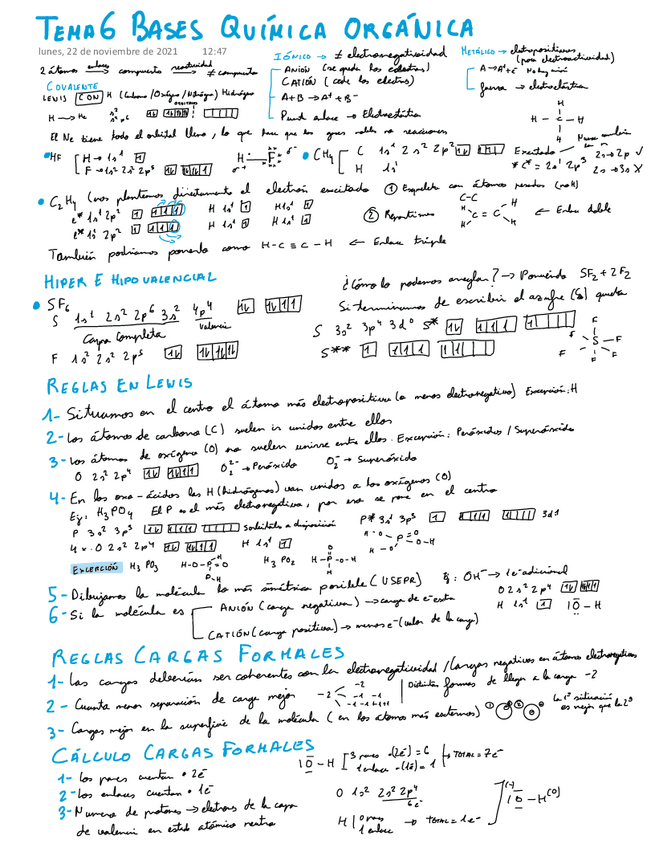 TEMA 6 BASES QUÍMICA ORGÁNICA
lunes, 22 de noviembre de 2021 12:47
2 átomos enlaces → compuesto reactividad → ≠ compuesto
COVALENTE
LEWIS CON H (Carbono/Oxígeno/Nitrógeno) Hidrógeno
H → He
IÓNICO → ≠ electronegatividad
ANIÓN (se queda los electrones)
CATIÓN (cede los electrones)
A+B → A⁺ + B⁻
enlace → Electrostática
METÁLICO → electropositivos
(poca electronegatividad)
fuerza → electrostática
H
H - C - H
H
El Ne tiene todo el orbital lleno, lo que hace que los gases nobles no reaccionen
HF H → 1s¹
F → 1s² 2s² 2p⁵
H — F
CH₄ C 1s² 2s² 2p² Excitado
H 1s¹ C* = 2s¹ 2p³ 2s → 2p ✓
2s → 3s X
C₂H₄ (nos planteamos directamente el electrón excitado) ① Esqueleto con átomos pesados (no H)
C-C
C* 1s¹ 2p³ H 1s¹ H 1s¹
C* 1s¹ 2p³ H 1s¹ H 1s¹
② Repartimos C = C ← Enlace doble
También podríamos ponerlo como H-C≡C-H ← Enlace triple
HIPER E HIPOVALENCIAL
SF₆
S 1s² 2s² 2p⁶ 3s² 4p⁴
Capa completa Valencia
F 1s² 2s² 2p⁵
¿Cómo lo podemos arreglar? → Poniendo SF₂ + 2F₂
Si terminamos de escribir el azufre (S) queda
S 3s² 3p⁴ 3d⁰ S*
S**
REGLAS EN LEWIS
1- Situamos en el centro el átomo más electropositivo (o menos electronegativo) Excepción: H
2- Los átomos de carbono (C) suelen ir unidos entre ellos
3- Los átomos de oxígeno (O) no suelen unirse entre ellos. Excepción: Peróxidos / Superóxido
O 2s² 2p⁴ O₂²⁻ → Peróxido O₂⁻ → Superóxido
4- En los oxo-ácidos los H (hidrógenos) van unidos a los oxígenos (O)
Ej: H₃PO₄ El P es el más electronegativo, por eso se pone en el centro
P 3s² 3p³ Sorbitales a disposición P* 3s¹ 3p³ 3d¹
4 x O 2s² 2p⁴ H 1s¹
EXCEPCIÓN H₃PO₃ H₃PO₂
5- Dibujamos la molécula lo más simétrica posible (USEPR) Ej: OH⁻ → 1e⁻ adicional
O 2s² 2p⁴
H 1s¹ |O - H
6- Si la molécula es ANIÓN (carga negativa) → carga de e⁻ extra
CATIÓN (carga positiva) → menos e⁻ (valor de la carga)
REGLAS CARGAS FORMALES
1- Las cargas deberían ser coherentes con la electronegatividad / Cargas negativas en átomos electronegativos
2- Cuanta menor separación de carga mejor -2 Distintas formas de llegar a la carga -2
3- Cargas mejor en la superficie de la molécula (en los átomos más externos) La 1ª situación
es mejor que la 2ª
CÁLCULO CARGAS FORMALES
1- Los pares cuentan · 2e⁻
2- Los enlaces cuentan · 1e⁻
3- Numero de protones → electrones de la capa
de valencia en estado atómico neutro
|O - H 3 pares · (2e⁻) = 6
1 enlace · (1e⁻) = 1 TOTAL = 7e⁻
O 1s² 2s² 2p⁴
6e⁻
H 0 pares
1 enlace → TOTAL = 1e⁻
|O - H